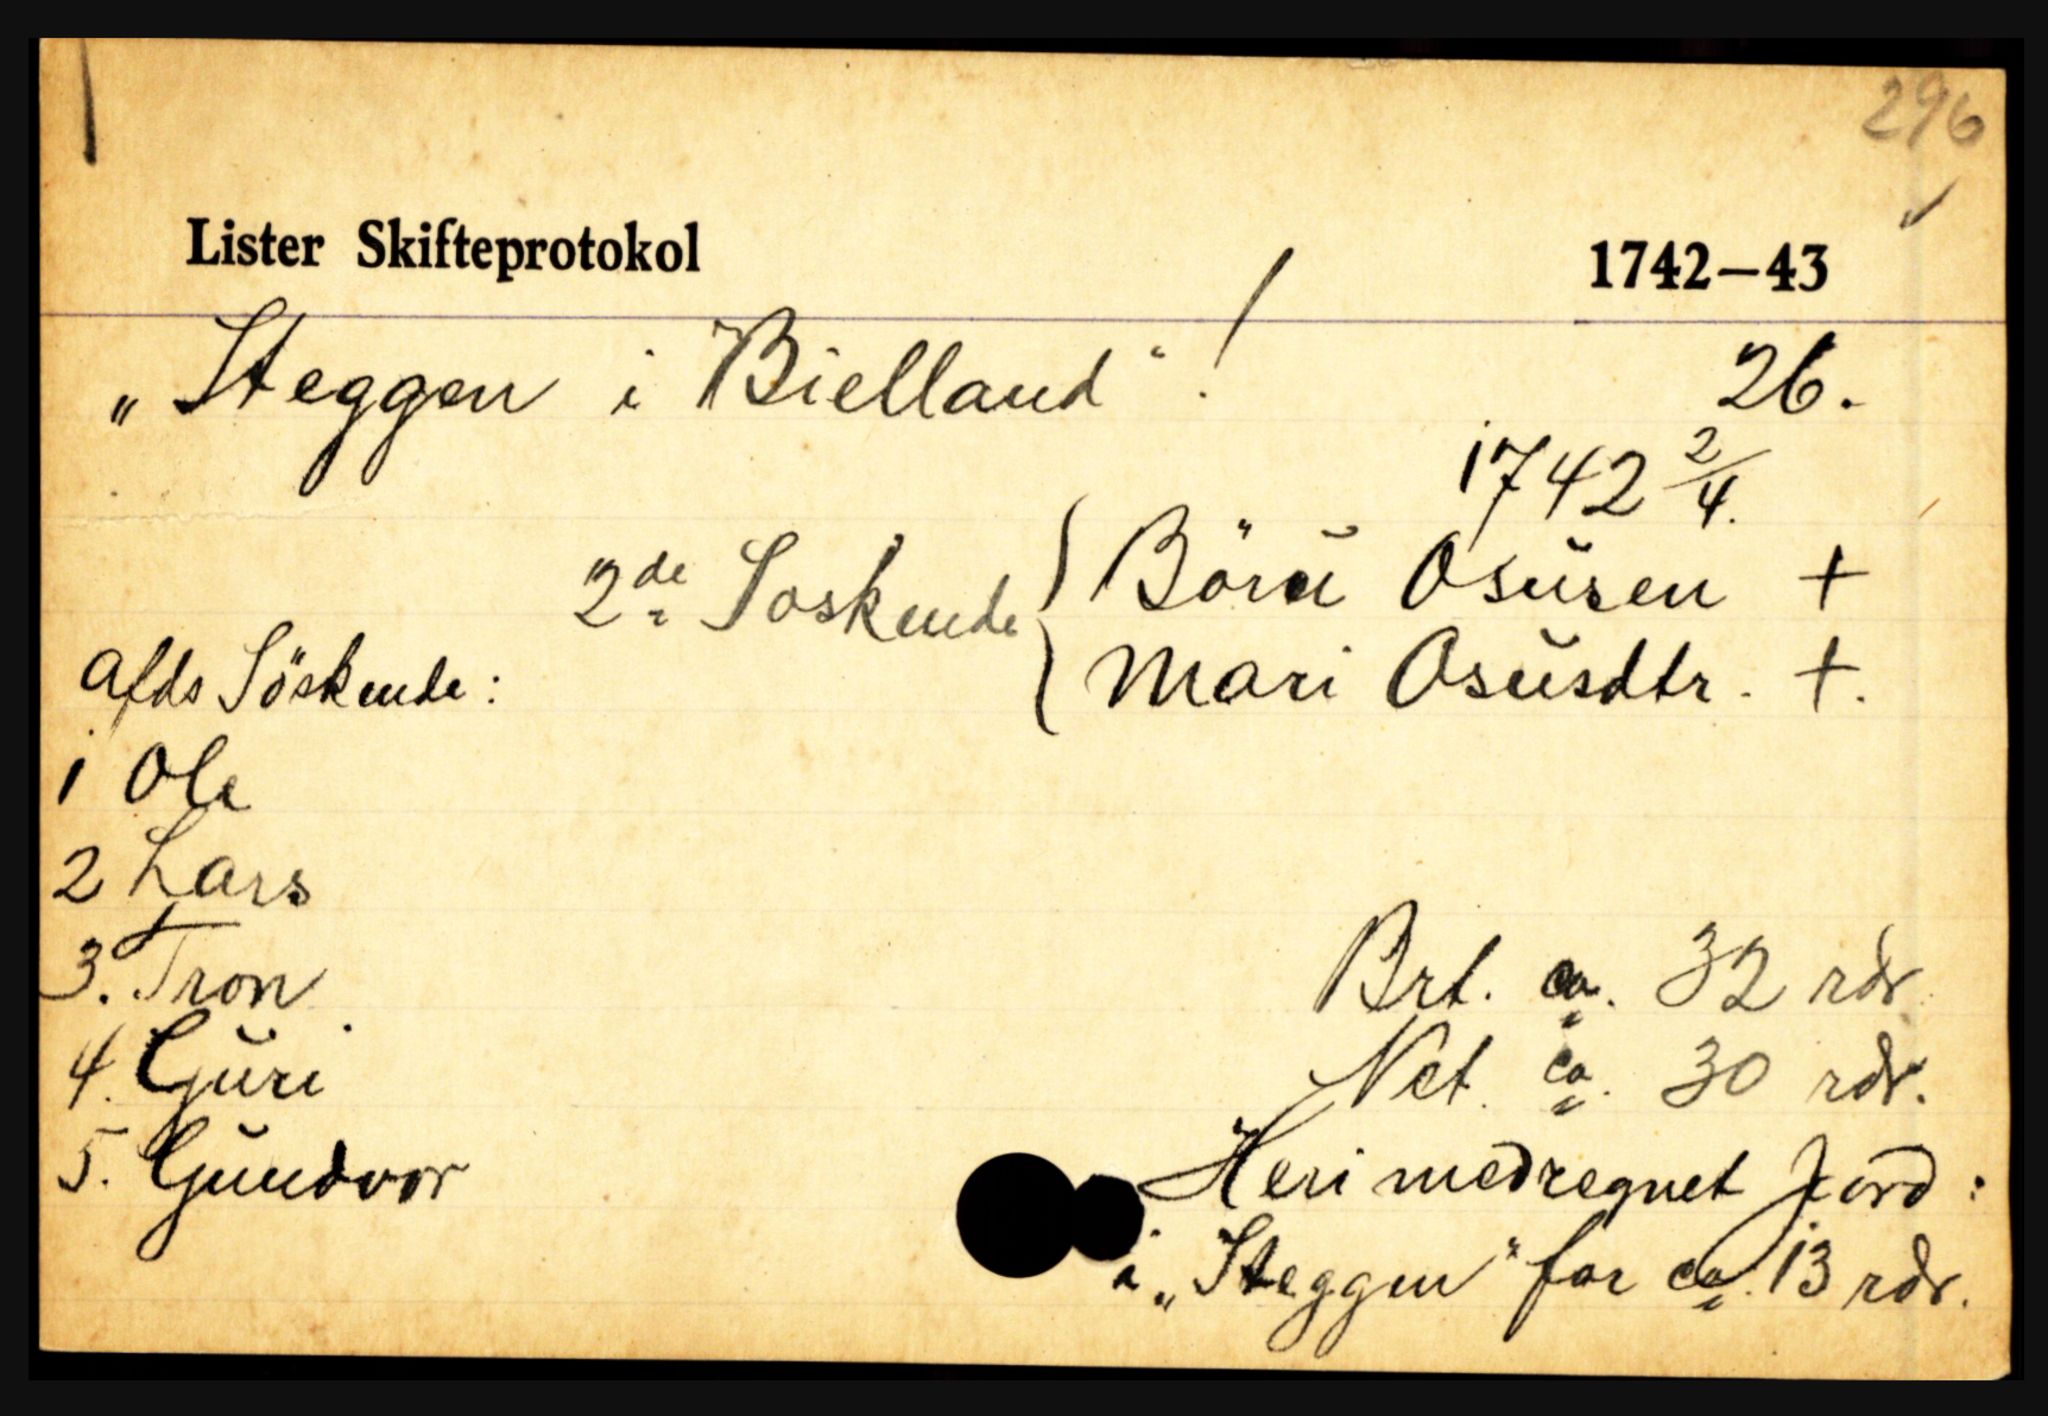 296
Lister Skifteprotokol 1742–43
„Steggen i Bielland“! 26.
1742 2/4.
2de Soskende { Börü Osüsen +
Mari Osüsdtr. +.
Afds Söskende:
1 Ole
2 Lars
3. Tron
4. Güri
5. Gündvor
Brt. ca. 32 rdr
Net. ca. 30 rdr.
Heri medregnet Jord:
i „Steggen“ for ca. 13 rdr.